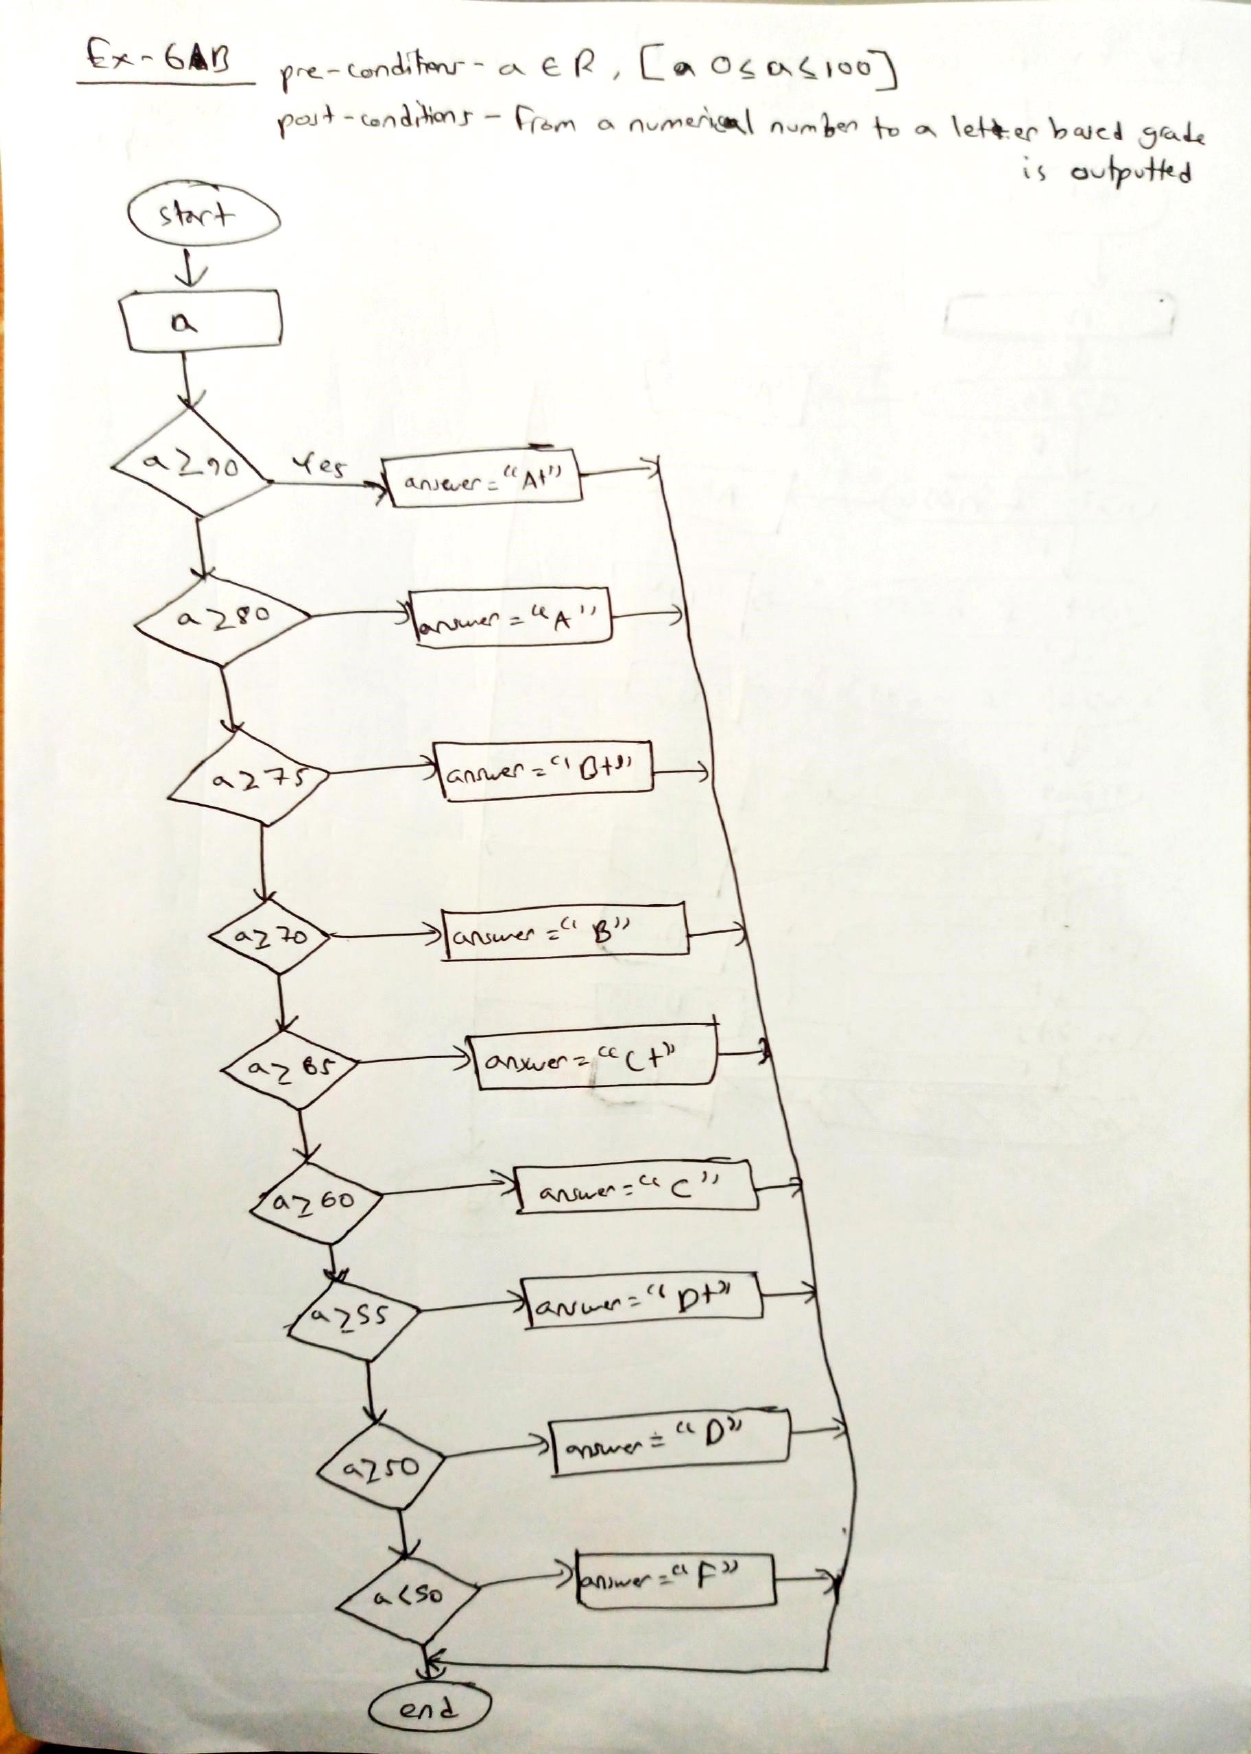 Ex-6AB
pre-conditions - a ∈ R, [a 0 ≤ a ≤ 100]
post-conditions - From a numerical number to a letter based grade
is outputted
start
a
a ≥ 90
Yes
answer = "A+"
a ≥ 80
answer = "A"
a ≥ 75
answer = "B+"
a ≥ 70
answer = "B"
a ≥ 65
answer = "C+"
a ≥ 60
answer = "C"
a ≥ 55
answer = "D+"
a ≥ 50
answer = "D"
a < 50
answer = "F"
end